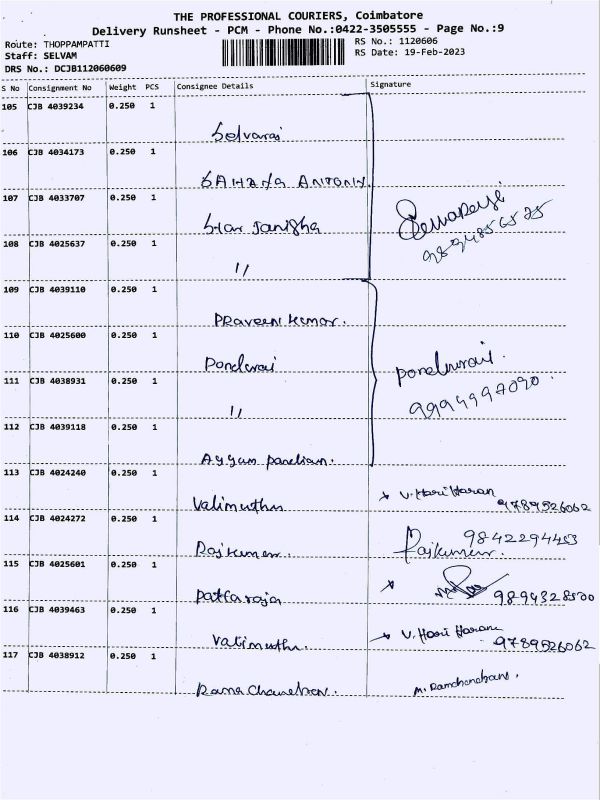 THE PROFESSIONAL COURIERS, Coimbatore
Delivery Runsheet - PCM - Phone No.:0422-3505555 - Page No.:9
Route: THOPPAMPATTI
RS No.: 1120606
Staff: SELVAM
RS Date: 19-Feb-2023
DRS No.: DCJB112060609
S No Consignment No Weight PCS Consignee Details Signature
105 CJB 4039234 0.250 1
Selvaraj
106 CJB 4034173 0.250 1
SAHAYA ANTONY
107 CJB 4033707 0.250 1
108 CJB 4025637 0.250 1
"
109 CJB 4039110 0.250 1
Praveen Kumar.
110 CJB 4025600 0.250 1
Pondurai
Pondurai.
111 CJB 4038931 0.250 1
9994997090.
"
112 CJB 4039118 0.250 1
Ayyam Pandian.
113 CJB 4024240 0.250 1
V. Hari Haran
Valimuthu 9789526062
114 CJB 4024272 0.250 1
9842294453
Rajkumar. Rajkumar.
115 CJB 4025601 0.250 1
Pattaraja 9894328500
116 CJB 4039463 0.250 1
V. Hari Haran
Valimuthu. 9789526062
117 CJB 4038912 0.250 1
Rama Chandran. M. Ramchandran.